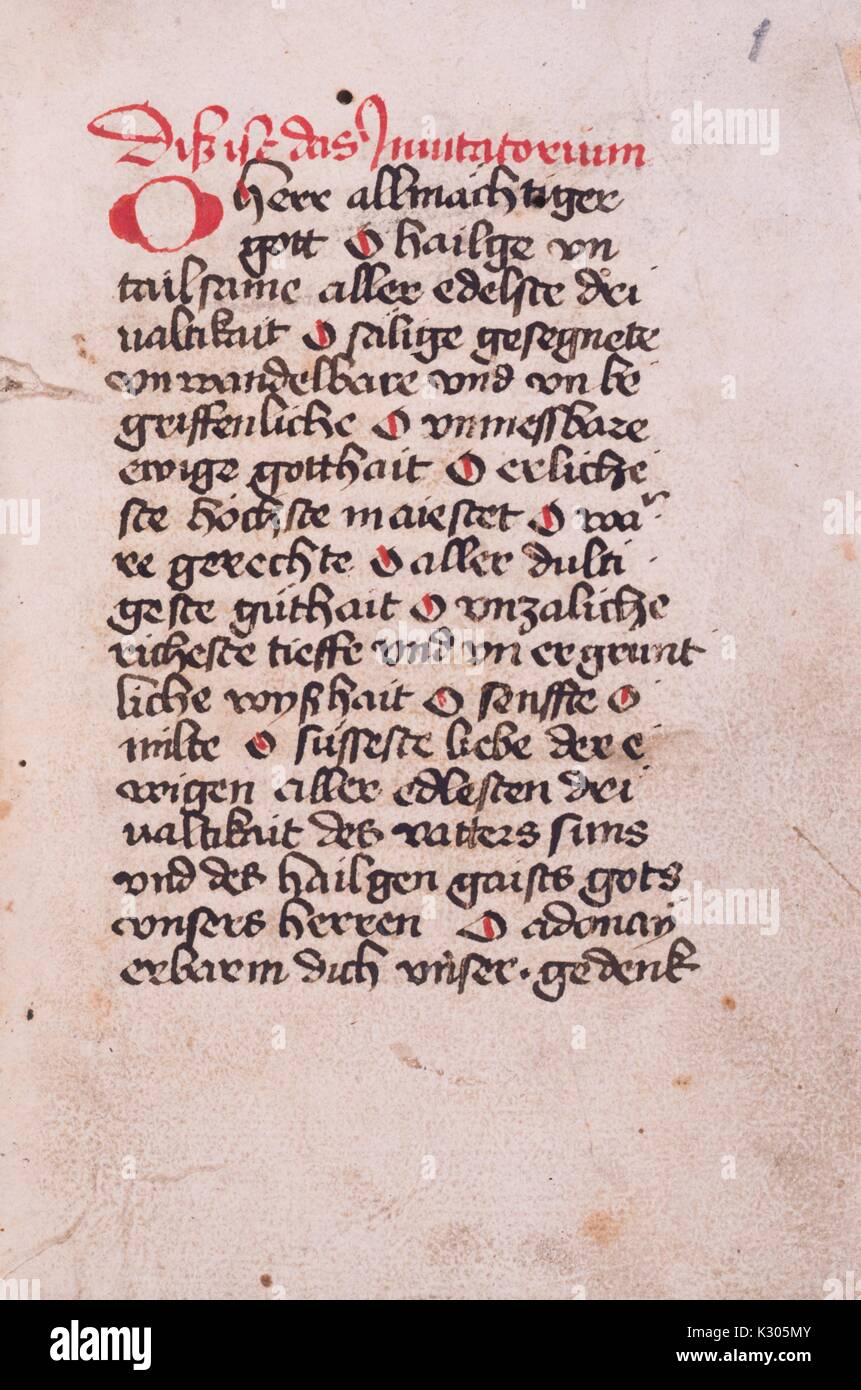 1
Diß ist das Inuitatorium
O herr allmächtiger
gott O hailge vn
tailsame aller edelste dri
ualtikait O sälige gesegnete
vnwandelbare vnd vn be
griffenliche O vnmessbare
ewige gotthait O erliche
ste höchste maiestet O wa
re gerechte O aller dulti
geste güthait O vnzaliche
richeste tieffe vnd vn ergrunt
liche wyßhait O senffte O
milte O süsseste liebe der e
wigen aller edlesten dri
ualtikait des vatters suns
vnd des hailgen gaists gots
vnsers herren O adonay
erbarm dich vnser. gedenk
alamy
Image ID: K305MY
www.alamy.com